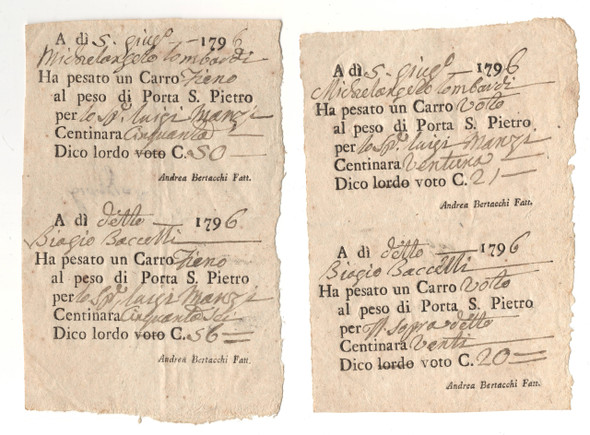 A dì 5. giugº 1796
Michelangelo Lombardi
Ha pesato un Carro Fieno
al peso di Porta S. Pietro
per lo Spº. Luigi Manzi
Centinara Cinquanta
Dico lordo voto C. 50
Andrea Bertacchi Fatt.
A dì detto 1796
Biagio Baccelli
Ha pesato un Carro Fieno
al peso di Porta S. Pietro
per lo Spº. Luigi Manzi
Centinara Cinquanta sei
Dico lordo voto C. 56
Andrea Bertacchi Fatt.
A dì 5. giugº 1796
Michelangelo Lombardi
Ha pesato un Carro Voto
al peso di Porta S. Pietro
per lo Spº. Luigi Manzi
Centinara Ventuna
Dico lordo voto C. 21
Andrea Bertacchi Fatt.
A dì detto 1796
Biagio Baccelli
Ha pesato un Carro Voto
al peso di Porta S. Pietro
per Sopra detto
Centinara Venti
Dico lordo voto C. 20
Andrea Bertacchi Fatt.